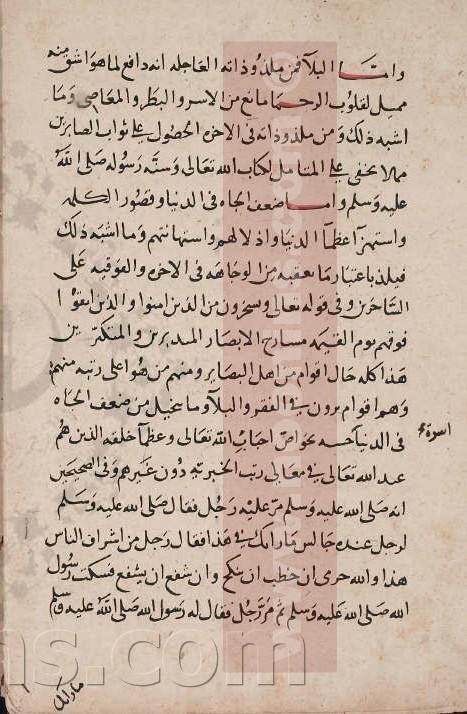 واما البلا فمن ملذوذاته العاجله انه دافع لما هو اشق منه
مميل لقلوب الرحما مانع من الاسر والبطر والمعاصى وما
اشبه ذلك ومن ملذوذاته فى الاخره الحصول على ثواب الصابرين
مما لا يخفى على المتامل لكتاب الله تعالى وسنة رسوله صلى الله
عليه وسلم واما ضعف الجاه فى الدنيا وقصور الكلمه
واستهزآ عظمآ الدنيا واذلالهم واستهانتهم وما اشبه ذلك
فيلذ باعتبار ما يعقبه من الوجاهة فى الاخره والفوقيه على
الساخرين وفى قوله تعالى ويسخرون من الذين امنوا والذين اتقوا
فوقهم يوم القيمه مسارح الابصار المدبرين والمتفكرين
هذا كله حال اقوام من اهل البصاير ومنهم من هو اعلى رتبه منهم
وهم اقوام يرون فى الفقر والبلآ وما يخيل من ضعف الجاه
فى الدنيا حسه بخواص احباب الله تعالى وعظمآ خلقه الذين هم
اسوة
عند الله تعالى فى معالى رتب الخيريه دون غيرهم وفى الصحيحين
انه صلى الله عليه وسلم مر عليه رجل فقال صلى الله عليه وسلم
لرجل عنده جالس ما رايك فى هذا فقال رجل من اشراف الناس
هذا والله حرى ان خطب ان ينكح وان شفع ان يشفع فسكت رسول
الله صلى الله عليه وسلم ثم مر رجل فقال له رسول الله صلى الله عليه وسلم
ما رايك
ns.com